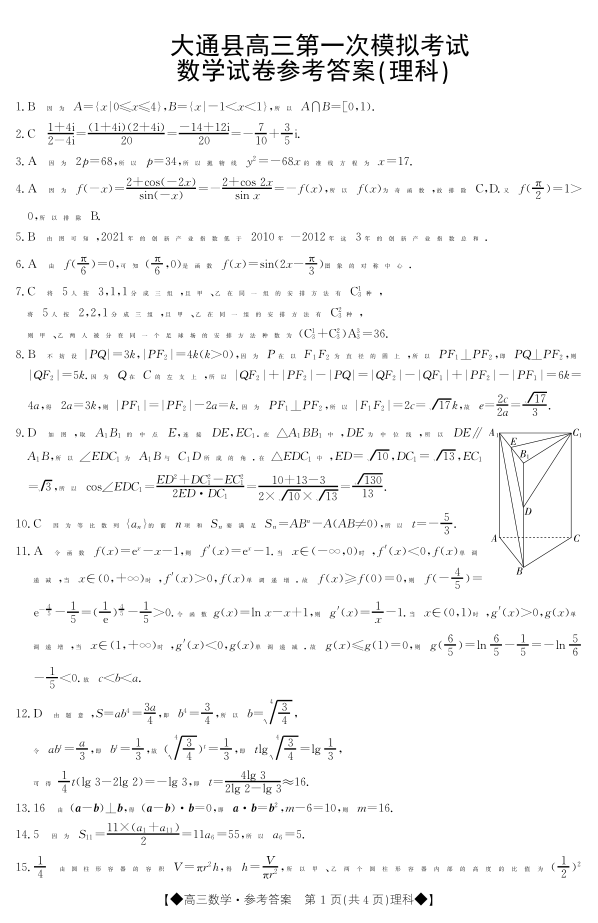 大通县高三第一次模拟考试
数学试卷参考答案(理科)
1. B 因为 A={x|0⩽x⩽4},B={x|-1<x<1},所以 A∩B=[0,1).
2. C (1+4i)/(2-4i)=(1+4i)(2+4i)/20=(-14+12i)/20=-7/10+3/5 i.
3. A 因为 2p=68,所以 p=34,所以抛物线 y²=-68x的准线方程为 x=17.
4. A 因为 f(-x)=(2+cos(-2x))/sin(-x)=-(2+cos 2x)/sin x=-f(x),所以 f(x)为奇函数,故排除 C,D.又 f(π/2)=1>
0,所以排除 B.
5. B 由图可知,2021年的创新产业指数低于 2010年-2012年这 3年的创新产业指数总和.
6. A 由 f(π/6)=0,可知(π/6,0)是函数 f(x)=sin(2x-π/3)图象的对称中心.
7. C 将 5人按 3,1,1分成三组,且甲、乙在同一组的安排方法有 C₃¹种,
将 5人按 2,2,1分成三组,且甲、乙在同一组的安排方法有 C₃²种,
则甲、乙两人被分在同一个足球场的安排方法种数为(C₃¹+C₃²)A₃³=36.
8. B 不妨设|PQ|=3k,|PF₂|=4k(k>0),因为 P在以 F₁F₂为直径的圆上,所以 PF₁⊥PF₂,即 PQ⊥PF₂,则
|QF₂|=5k.因为 Q在 C的左支上,所以|QF₂|+|PF₂|-|PQ|=|QF₂|-|QF₁|+|PF₂|-|PF₁|=6k=
4a,得 2a=3k,则|PF₁|=|PF₂|-2a=k.因为 PF₁⊥PF₂,所以|F₁F₂|=2c=√17k,故 e=2c/2a=√17/3.
9. D 如图,取 A₁B₁的中点 E,连接 DE,EC₁.在△A₁BB₁中,DE为中位线,所以 DE∥
A₁B,所以∠EDC₁为 A₁B与 C₁D所成的角.在△EDC₁中,ED=√10,DC₁=√13,EC₁
=√3,所以 cos∠EDC₁=(ED²+DC₁²-EC₁²)/(2ED·DC₁)=(10+13-3)/(2×√10×√13)=√130/13.
A₁ C₁
E
B₁
D
A C
B
10. C 因为等比数列{aₙ}的前 n项和 Sₙ要满足 Sₙ=ABⁿ-A(AB≠0),所以 t=-5/3.
11. A 令函数 f(x)=eˣ-x-1,则 f′(x)=eˣ-1.当 x∈(-∞,0)时,f′(x)<0,f(x)单调
递减,当 x∈(0,+∞)时,f′(x)>0,f(x)单调递增.故 f(x)⩾f(0)=0,则 f(-4/5)=
e^(-4/5)-1/5=(1/e)^(4/5)-1/5>0.令函数 g(x)=ln x-x+1,则 g′(x)=1/x-1.当 x∈(0,1)时,g′(x)>0,g(x)单
调递增,当 x∈(1,+∞)时,g′(x)<0,g(x)单调递减.故 g(x)⩽g(1)=0,则 g(6/5)=ln 6/5-1/5=-ln 5/6
-1/5<0.故 c<b<a.
12. D 由题意,S=ab⁴=3a/4,即 b⁴=3/4,所以 b=⁴√(3/4),
令 abᵗ=a/3,即 bᵗ=1/3,故(⁴√(3/4))ᵗ=1/3,即 tlg ⁴√(3/4)=lg 1/3,
可得 1/4 t(lg 3-2lg 2)=-lg 3,即 t=4lg 3/(2lg 2-lg 3)≈16.
13. 16 由(a-b)⊥b,得(a-b)·b=0,即 a·b=b²,m-6=10,则 m=16.
14. 5 因为 S₁₁=11×(a₁+a₁₁)/2=11a₆=55,所以 a₆=5.
15. 1/4 由圆柱形容器的容积 V=πr²h,得 h=V/πr²,所以甲、乙两个圆柱形容器内部的高度的比值为(1/2)²
【◆高三数学·参考答案 第 1 页(共 4 页)理科◆】